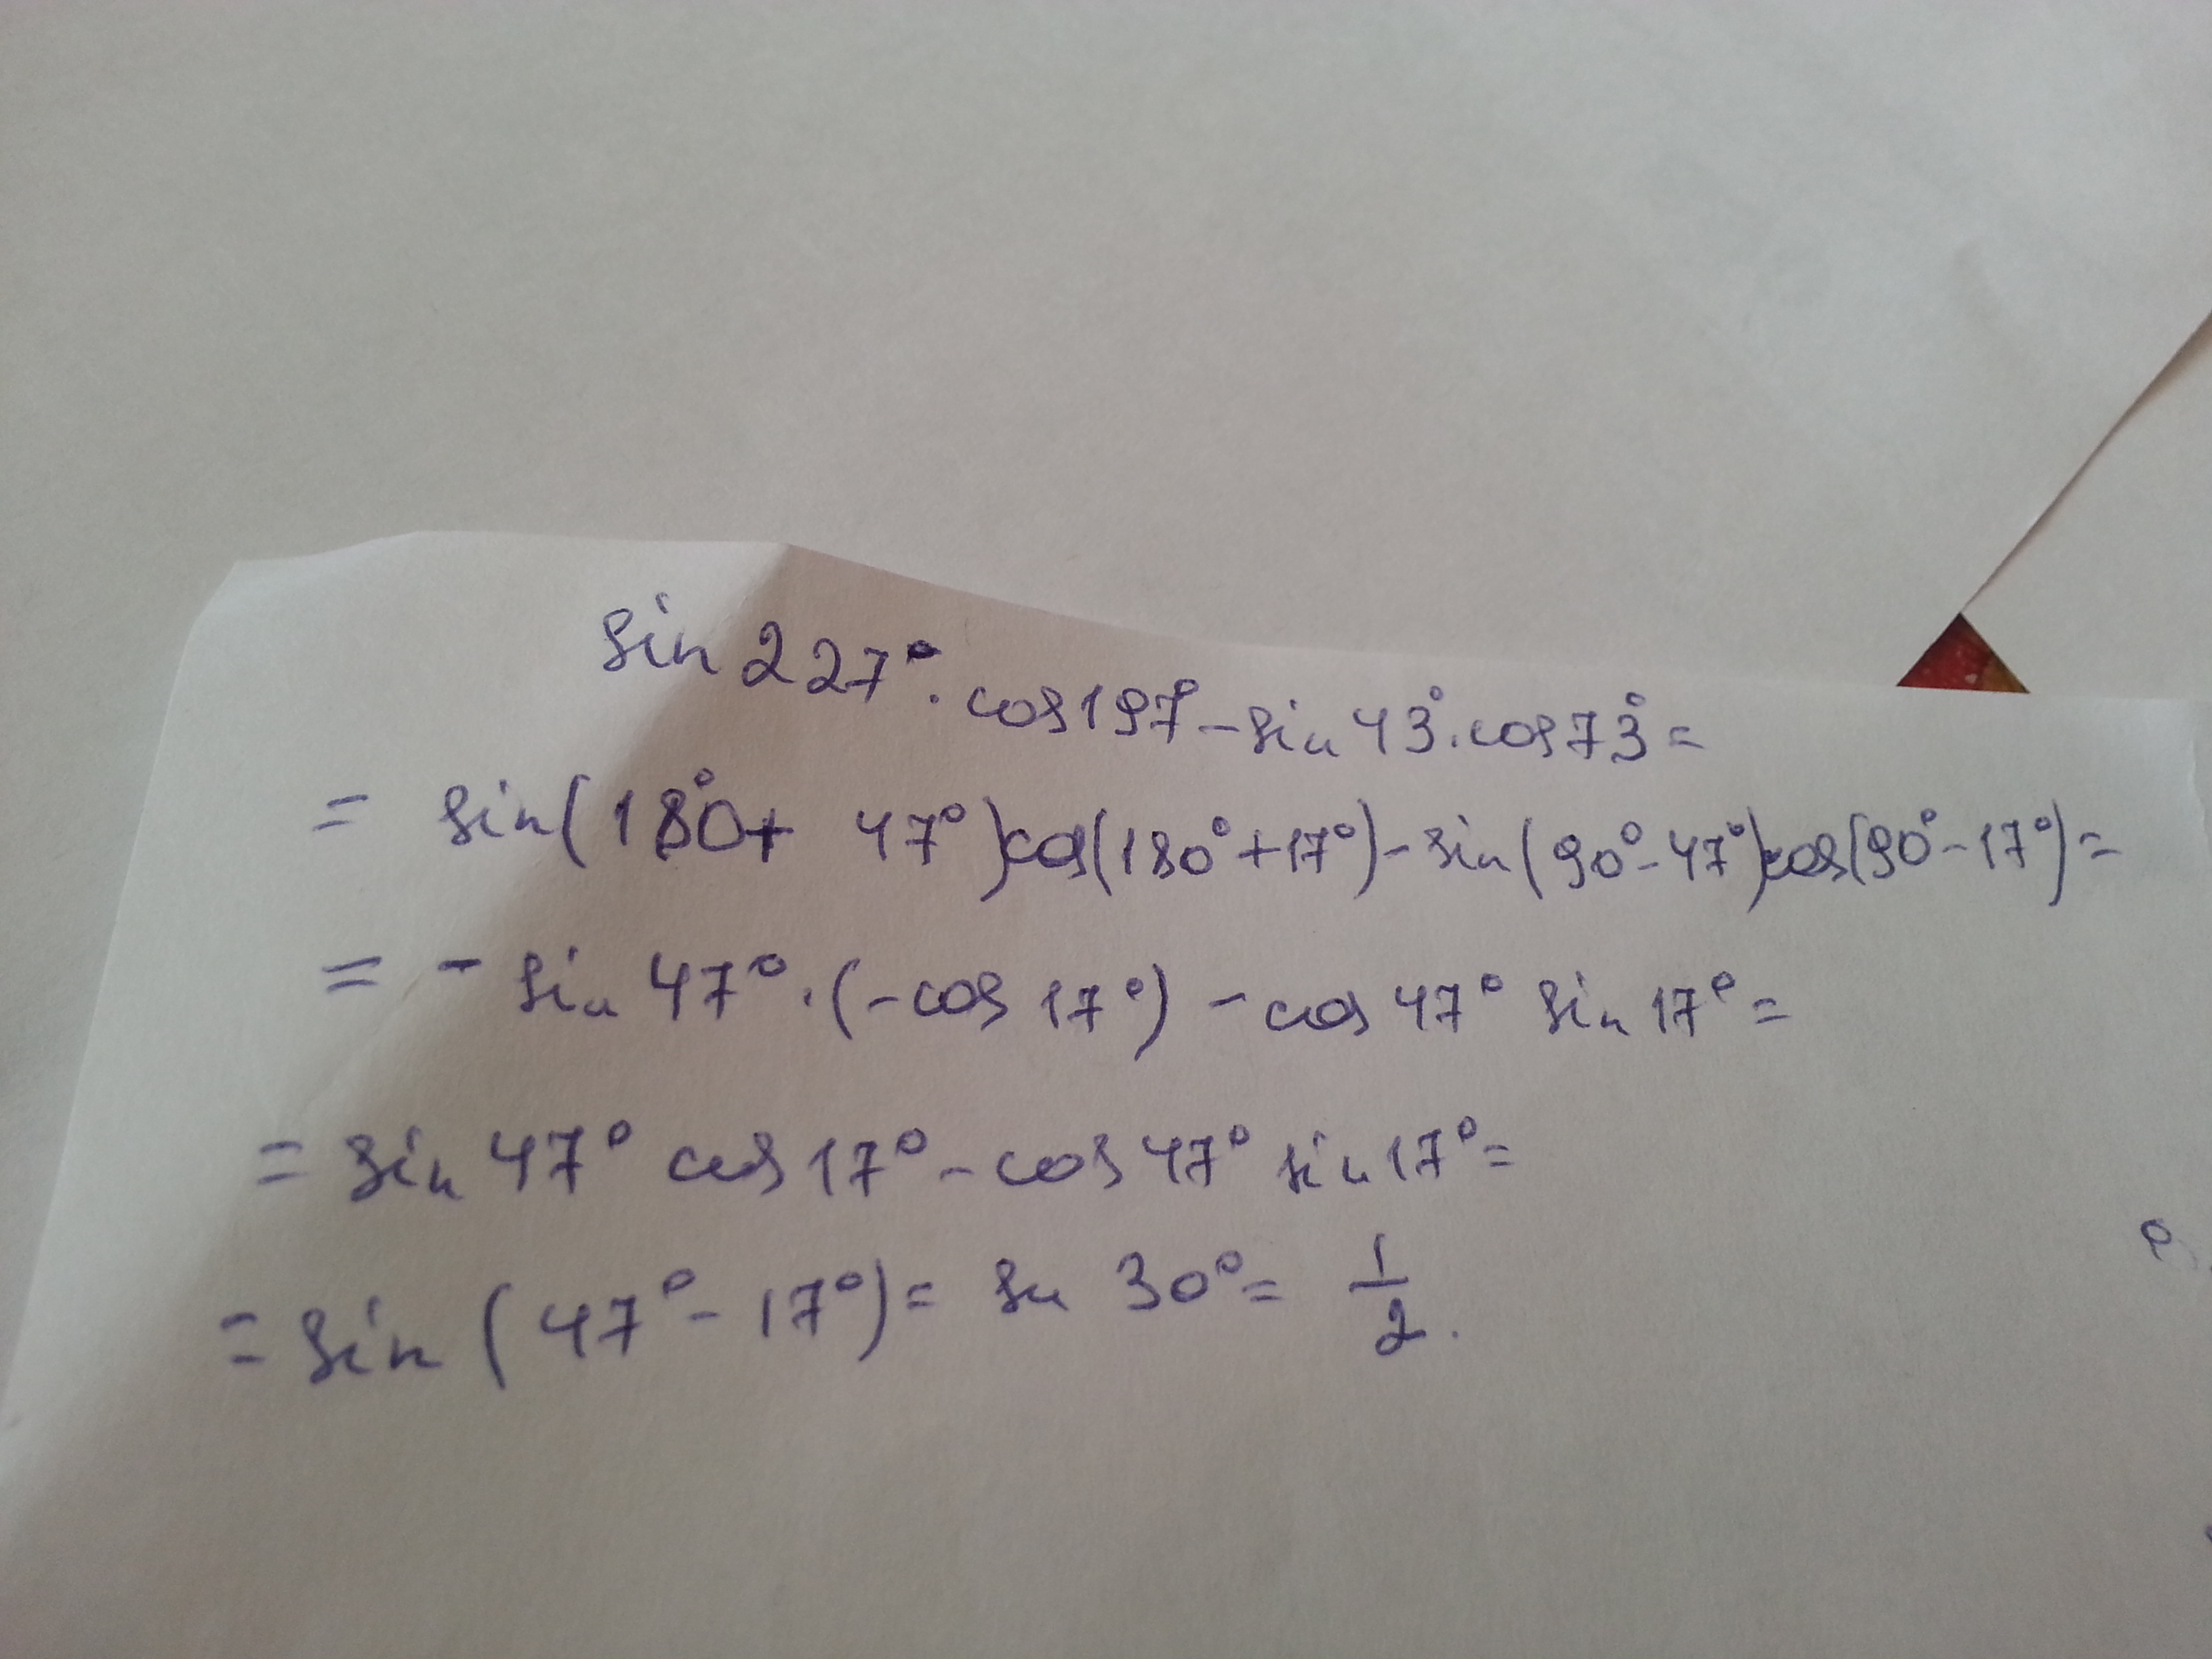 sin 227° · cos 197° - sin 43° · cos 73° =
= sin(180° + 47°)cos(180° + 17°) - sin(90° - 47°)cos(90° - 17°) =
= - sin 47° · (- cos 17°) - cos 47° sin 17° =
= sin 47° cos 17° - cos 47° sin 17° =
= sin (47° - 17°) = sin 30° = 1/2.